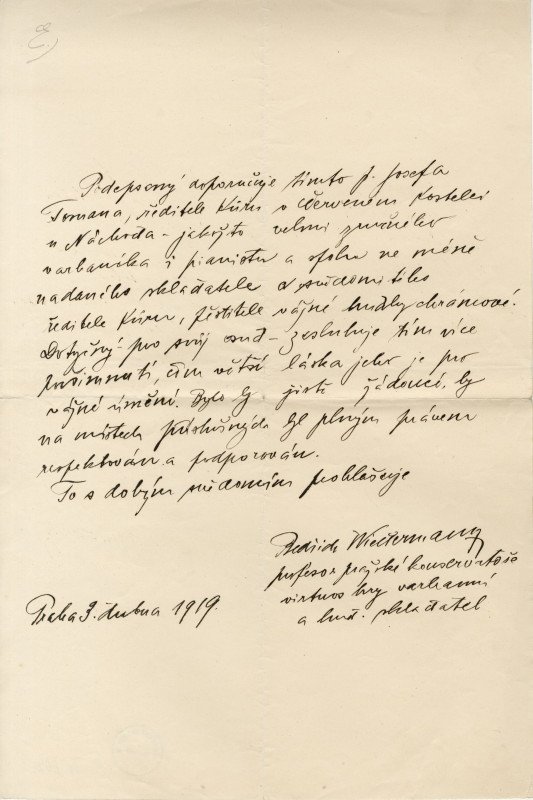 E.)
Podepsaný doporučuje tímto p. Josefa
Tomana, ředitele kůru v Červeném Kostelci
u Náchoda - jakožto velmi zručného
varhaníka i pianistu a spolu ne méně
nadaného skladatele a svědomitého
ředitele kůru, pěstitele vážné hudby chrámové.
Dotyčný pro svůj - zasluhuje tím více
povšimnutí, čím větší láska jeho je pro
vážné umění. Bylo by jistě žádoucí, by
na místech příslušných byl plným právem
respektován a podporován.
To s dobrým svědomím prohlašuje
Bedřich Wiedermann
profesor pražské konservatoře
virtuos hry varhanní
a hud. skladatel
Praha 3. dubna 1919.